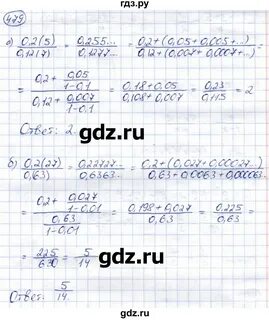 гдз.ру
479
а) 0,2(5)/0,12(7) = 0,255.../0,1277... = 0,2+(0,05+0,005+...)/0,12+(0,007+0,0007+...) =
= (0,2 + 0,05/(1-0,1))/(0,12 + 0,007/(1-0,1)) = (0,18+0,05)/(0,108+0,007) = 0,23/0,115 = 2
Ответ: 2.
gdz.ru
б) 0,2(27)/0,(63) = 0,22727.../0,6363... = 0,2+(0,027+0,00027...)/0,63+0,0063+0,000063... =
= (0,2 + 0,027/(1-0,01))/(0,63/(1-0,01)) = (0,198+0,027)/0,63 = 0,225/0,63 =
= 225/630 = 5/14
gdz.ru
Ответ: 5/14
gdz.ru